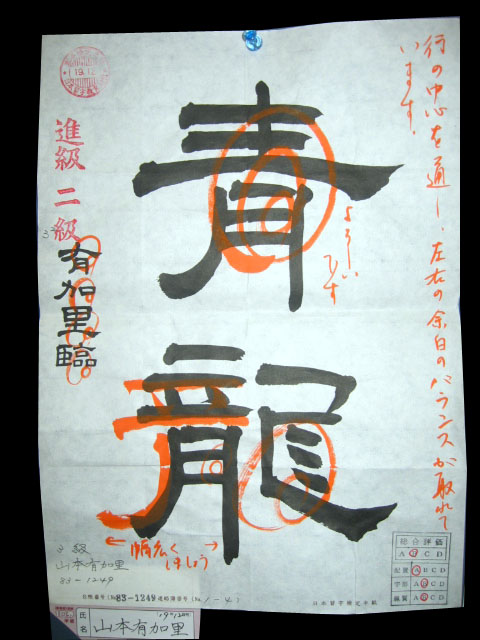 行の中心を通し、左右の余白のバランスが取れて
います。
青龍
よろしい
です
幅広く
しましょう
進級 二級
有加里臨
3級
山本有加里
83-1249
総合評価
A B C D
A B C D
字形 A B C D
A B C D
日本習字検定手紙
氏名
山本有加里